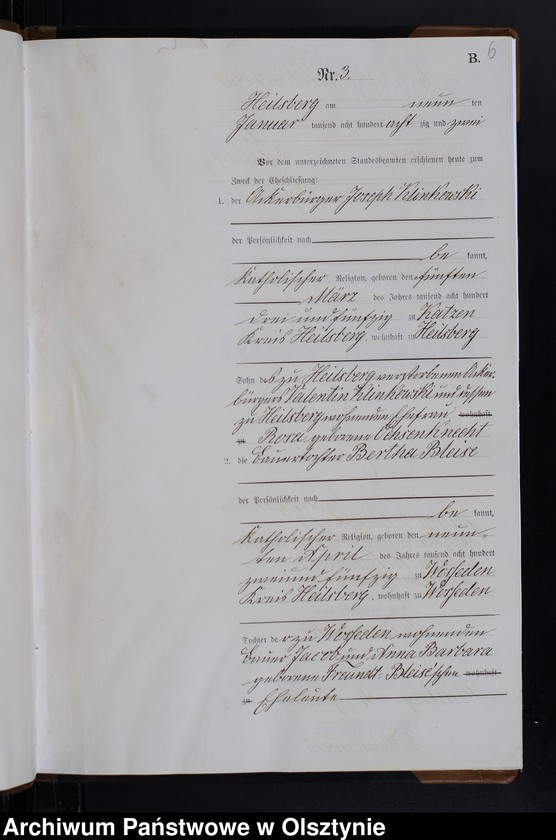 B. 6
Nr. 3.
Heilsberg am neun ten
Januar tausend acht hundert acht zig und zwei
Vor dem unterzeichneten Standesbeamten erschienen heute zum
Zweck der Eheschließung:
1. der Ackerbürger Joseph Klinkowski
der Persönlichkeit nach
be kannt,
katholischer Religion, geboren den fünften
März des Jahres tausend acht hundert
drei und fünfzig zu Katzen
Kreis Heilsberg, wohnhaft zu Heilsberg
Sohn des zu Heilsberg verstorbenen Acker-
bürgers Valentin Klinkowski und dessen
zu Heilsberg wohnenden Ehefrau wohnhaft
zu Rosa geborene Ochsenknecht
2. die Bauertochter Bertha Bleise
der Persönlichkeit nach
be kannt,
katholischer Religion, geboren den neun-
ten April des Jahres tausend acht hundert
zwei und fünfzig zu Wosseden
Kreis Heilsberg, wohnhaft zu Wosseden
Tochter der zu Wosseden wohnenden
Bauer Jacob und Anna Barbara
geborene Freundt-Bleise'schen wohnhaft
zu Eheleute
Archiwum Państwowe w Olsztynie